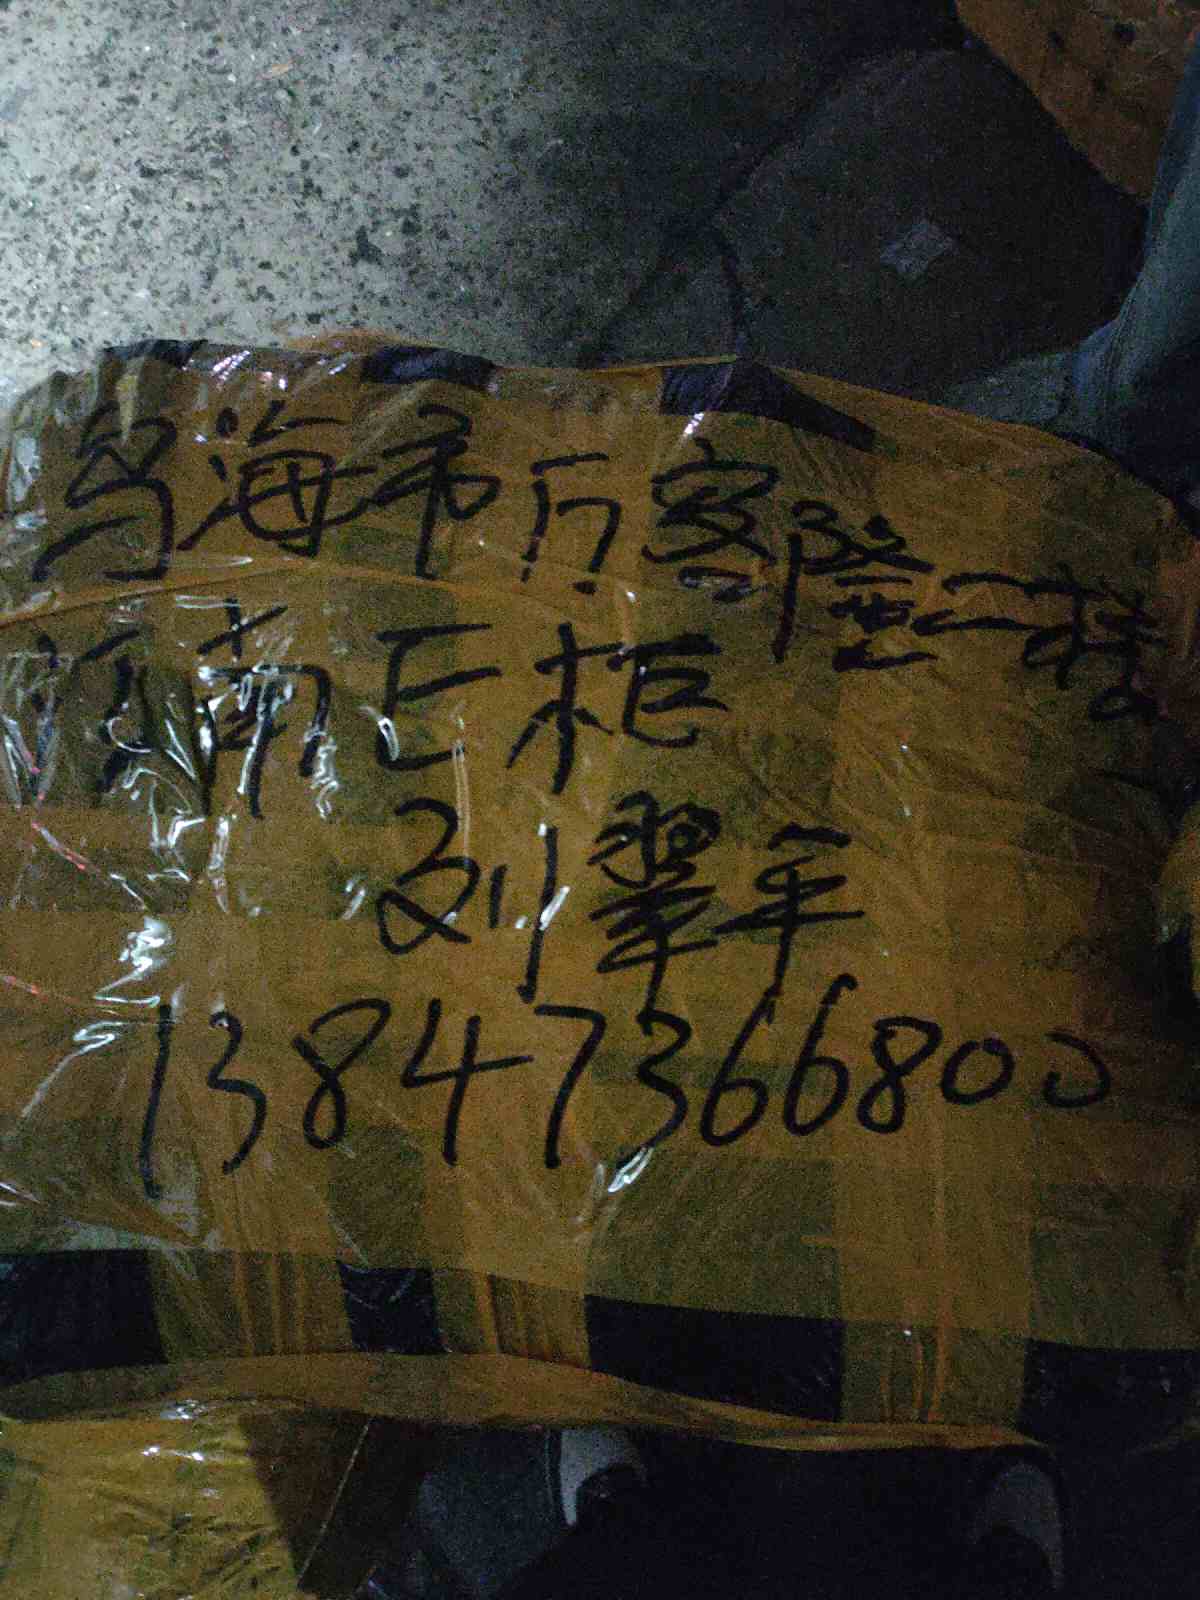 乌海市万客隆一楼
河南巨柜
刘翠平
13847366800